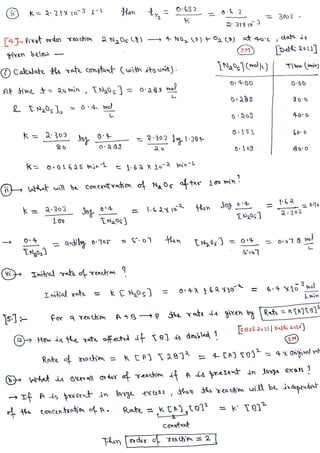 (ii) K = 2.31×10⁻³ s⁻¹ then t½ = 0.693/K = 0.693/2.31×10⁻³ = 300s.
[4]→ First order reaction 2N₂O₅(g) → 4NO₂(g) + O₂(g) at 40°C, data is
given below — (3M) [Delhi 2011]
[N₂O₅] (mol/L) Time (min)
0.400 0.00
0.289 20.0
0.209 40.0
0.151 60.0
0.109 80.0
(i) Calculate the rate constant (with its unit).
At time t = 20 min, [N₂O₅] = 0.289 mol/L
& [N₂O₅]₀ = 0.4 mol/L
K = 2.303/20 log 0.4/0.289 = 2.303/20 log 1.384
K = 0.01625 min⁻¹ = 1.62×10⁻² min⁻¹
(ii) what will be concentration of N₂O₅ after 100 min?
K = 2.303/100 log 0.4/[N₂O₅] = 1.62×10⁻² then log 0.4/[N₂O₅] = 1.62/2.303
→ 0.4/[N₂O₅] = antilog 0.705 = 5.07 then [N₂O₅] = 0.4/5.07 = 0.078 mol/L
(iii) Initial rate of reaction?
Initial rate = K[N₂O₅] = 0.4×1.62×10⁻² = 6.4×10⁻³ mol/L min
[5]:- For a reaction A+B → P the rate is given by Rate = K[A][B]²
(3M)
(a)→ How is the rate affected if [B] is doubled?
Rate of reaction = K[A][2B]² = 4[A][B]² = 4×original
(b)→ what is overall order of reaction if A is present in large excess?
→ If A is present in large excess, then the reaction will be independent
of the concentration of A. Rate = K[A][B]² = K'[B]²
constant
Then order of reaction = 2